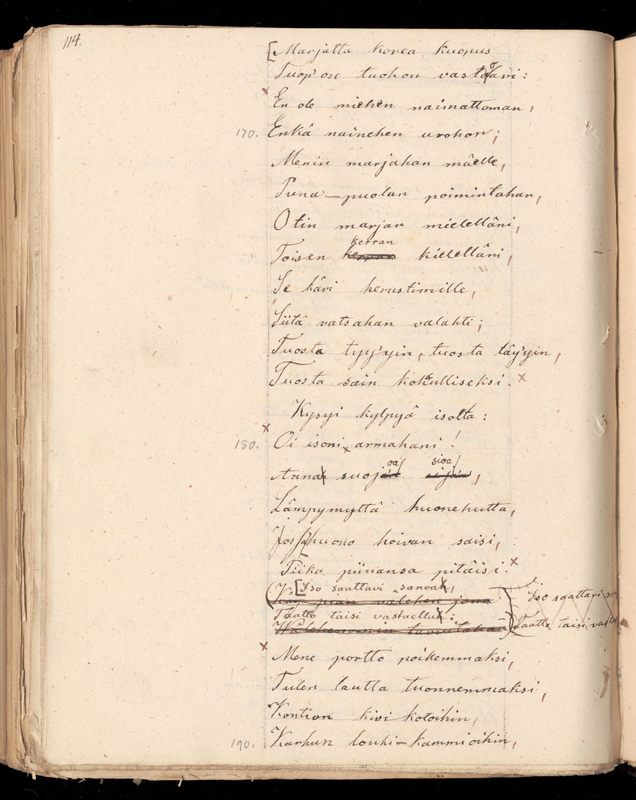 114.
[Marjatta korea kuopus
Tuop' on tuohon vastoavi:
En ole miehen naimattoman,
170. Enkä nainehen urohon;
Menin marjahan mäelle,
Puna-puolan poimintahan,
Otin marjan mielelläni,
Toisen kerran kielelläni,
Se kävi kerustimille,
Siitä vatsahan valahti;
Tuosta tyy'yin, tuosta täy'yin,
Tuosta sain kohulliseksi.
Kysyi kylpyä isolta:
180. Oi isoni, armahani!
Anna suojoa sioa,
Lämpymyttä huonehutta,
Jossa huono hoivan saisi,
Piika piinansa pitäisi.
[Iso saattavi sanoa,
Taatto taisi vastuella:
Iso saattavi
Taatto taisi
Mene portto poikemmaksi,
Tulen lautta tuonnemmaksi,
Kontion kivi koloihin,
190. Karhun louhi-kammioihin,